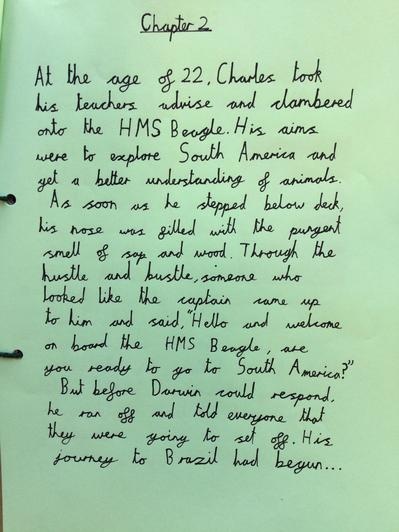 Chapter 2
At the age of 22, Charles took
his teachers advise and clambered
onto the HMS Beagle. His aims
were to explore South America and
get a better understanding of animals.
As soon as he stepped below deck,
his nose was filled with the pungent
smell of sap and wood. Through the
hustle and bustle, someone who
looked like the captain came up
to him and said, "Hello and welcome
on board the HMS Beagle, are
you ready to go to South America?"
But before Darwin could respond,
he ran off and told everyone that
they were going to set off. His
journey to Brazil had begun...